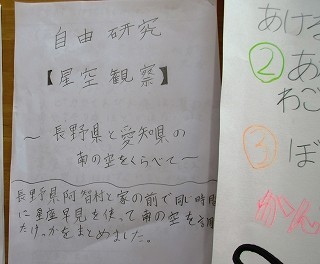 自由研究
【星空観察】
～長野県と愛知県の
南の空をくらべて～
長野県阿智村と家の前で同じ時間
に星座早見を使って南の空を
たけっかをまとめました。
あける
②あ
わご
③ぼ